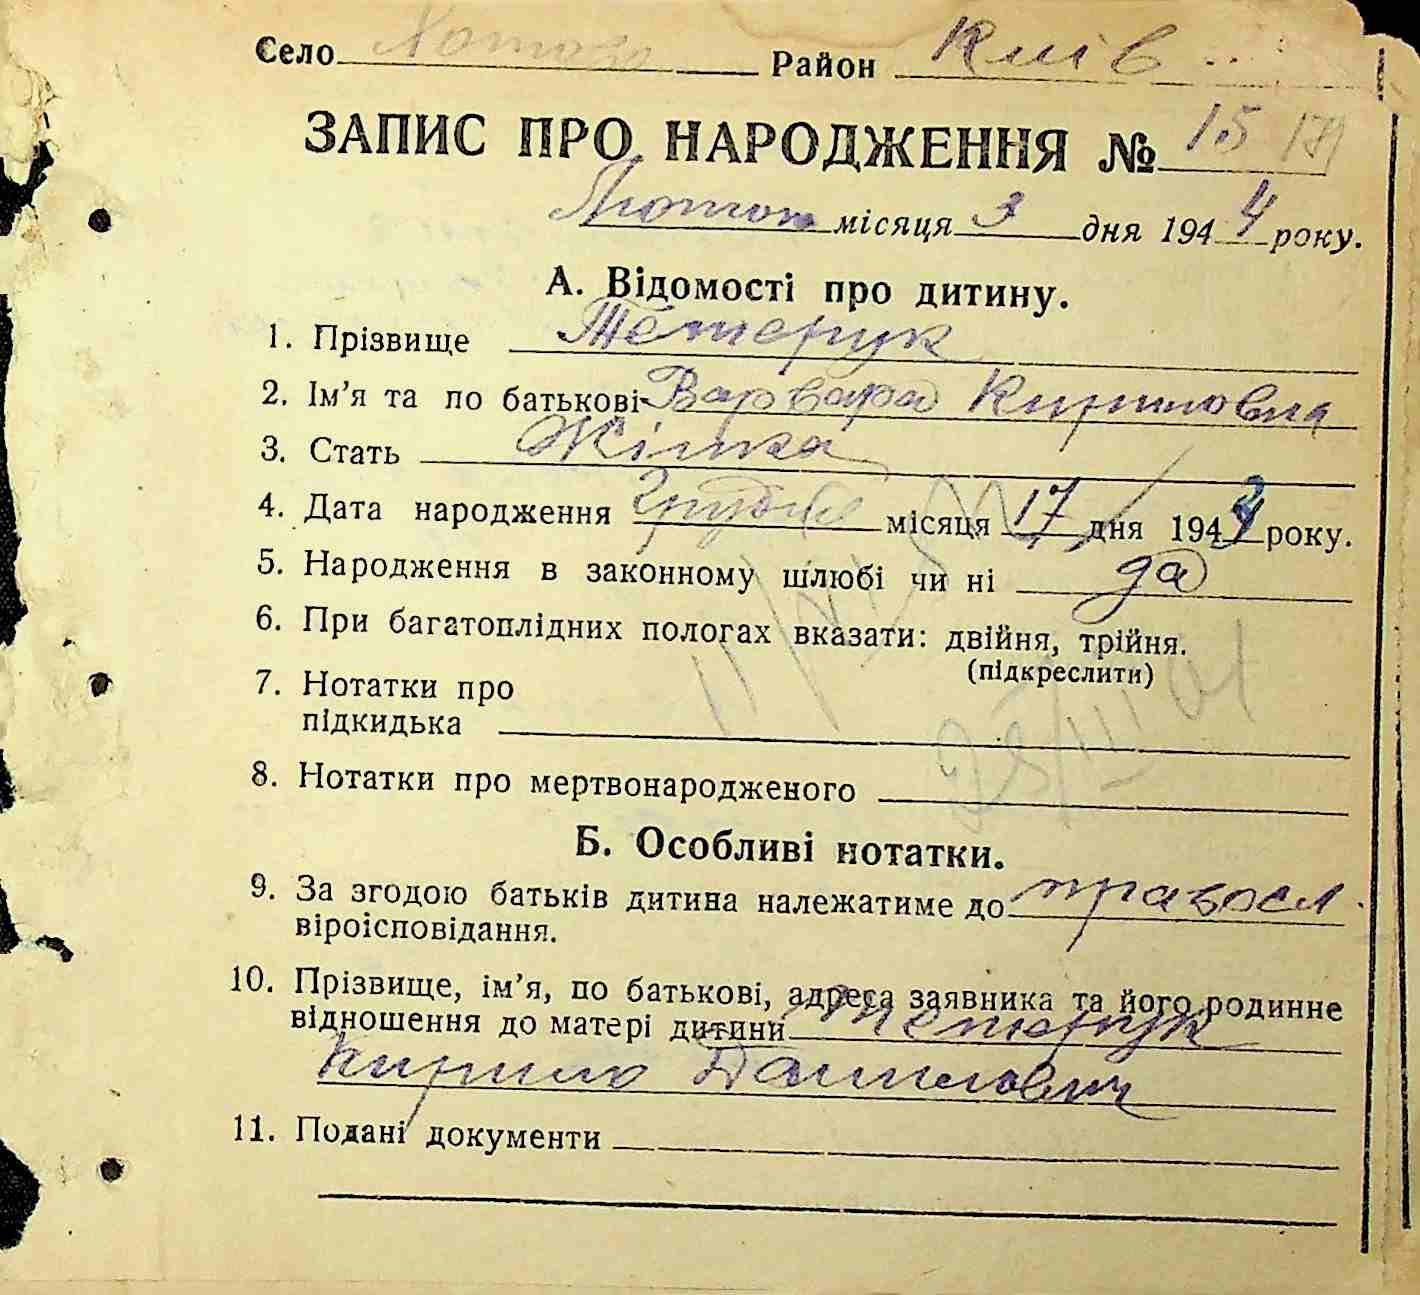 Село Хотово Район Київ
ЗАПИС ПРО НАРОДЖЕННЯ № 15
Лютого місяця 3 дня 1944 року.
А. Відомості про дитину.
1. Прізвище Тетерук
2. Ім'я та по батькові Варвара Кириловна
3. Стать Жінка
4. Дата народження Грудня місяця 17 дня 1943 року.
5. Народження в законному шлюбі чи ні да
6. При багатоплідних пологах вказати: двійня, трійня.
(підкреслити)
7. Нотатки про
підкидька
8. Нотатки про мертвонародженого
Б. Особливі нотатки.
9. За згодою батьків дитина належатиме до правосл.
віроісповідання.
10. Прізвище, ім'я, по батькові, адреса заявника та його родинне
відношення до матері дитини Тетерук
Кирило Данилович
11. Подані документи